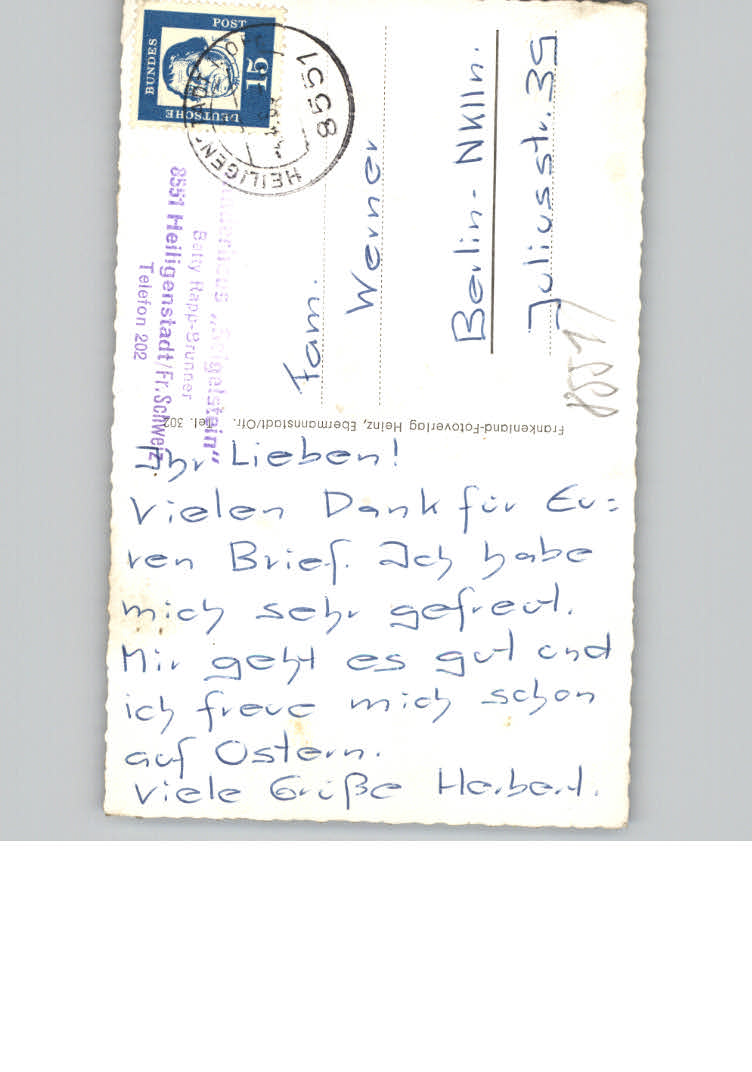 DEUTSCHE
BUNDES
POST
15
HEILIGENSTADT
8551
"Seigelstein"
Betty Rapp-Brunner
8551 Heiligenstadt/Fr. Schweiz
Telefon 202
Fam.
Werner
Berlin - Nklln.
Juliusstr. 39
Frankenland-Fotoverlag Heinz, Ebermannstadt/Ofr. Tel. 302
Ihr Lieben!
Vielen Dank für Eu=
ren Brief. Ich habe
mich sehr gefreut.
Mir geht es gut und
ich freue mich schon
auf Ostern.
Viele Grüße Herbert.